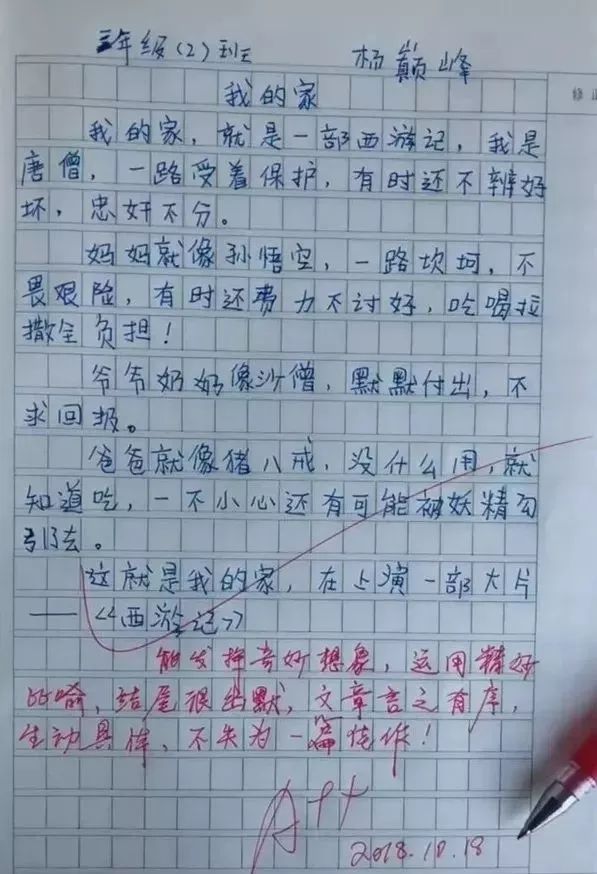 三年级(2)班 杨巅峰
我的家
我的家，就是一部西游记，我是
唐僧，一路受着保护，有时还不辨好
坏，忠奸不分。
妈妈就像孙悟空，一路坎坷，不
畏艰险，有时还费力不讨好，吃喝拉
撒全负担！
爷爷奶奶像沙僧，默默付出，不
求回报。
爸爸就像猪八戒，没什么用，就
知道吃，一不小心还有可能被妖精勾
引去。
这就是我的家，在上演一部大片
——《西游记》
能发挥奇妙想象，运用精妙
比喻，结尾很幽默，文章言之有序，
生动具体，不失为一篇佳作！
A++
2018.10.18